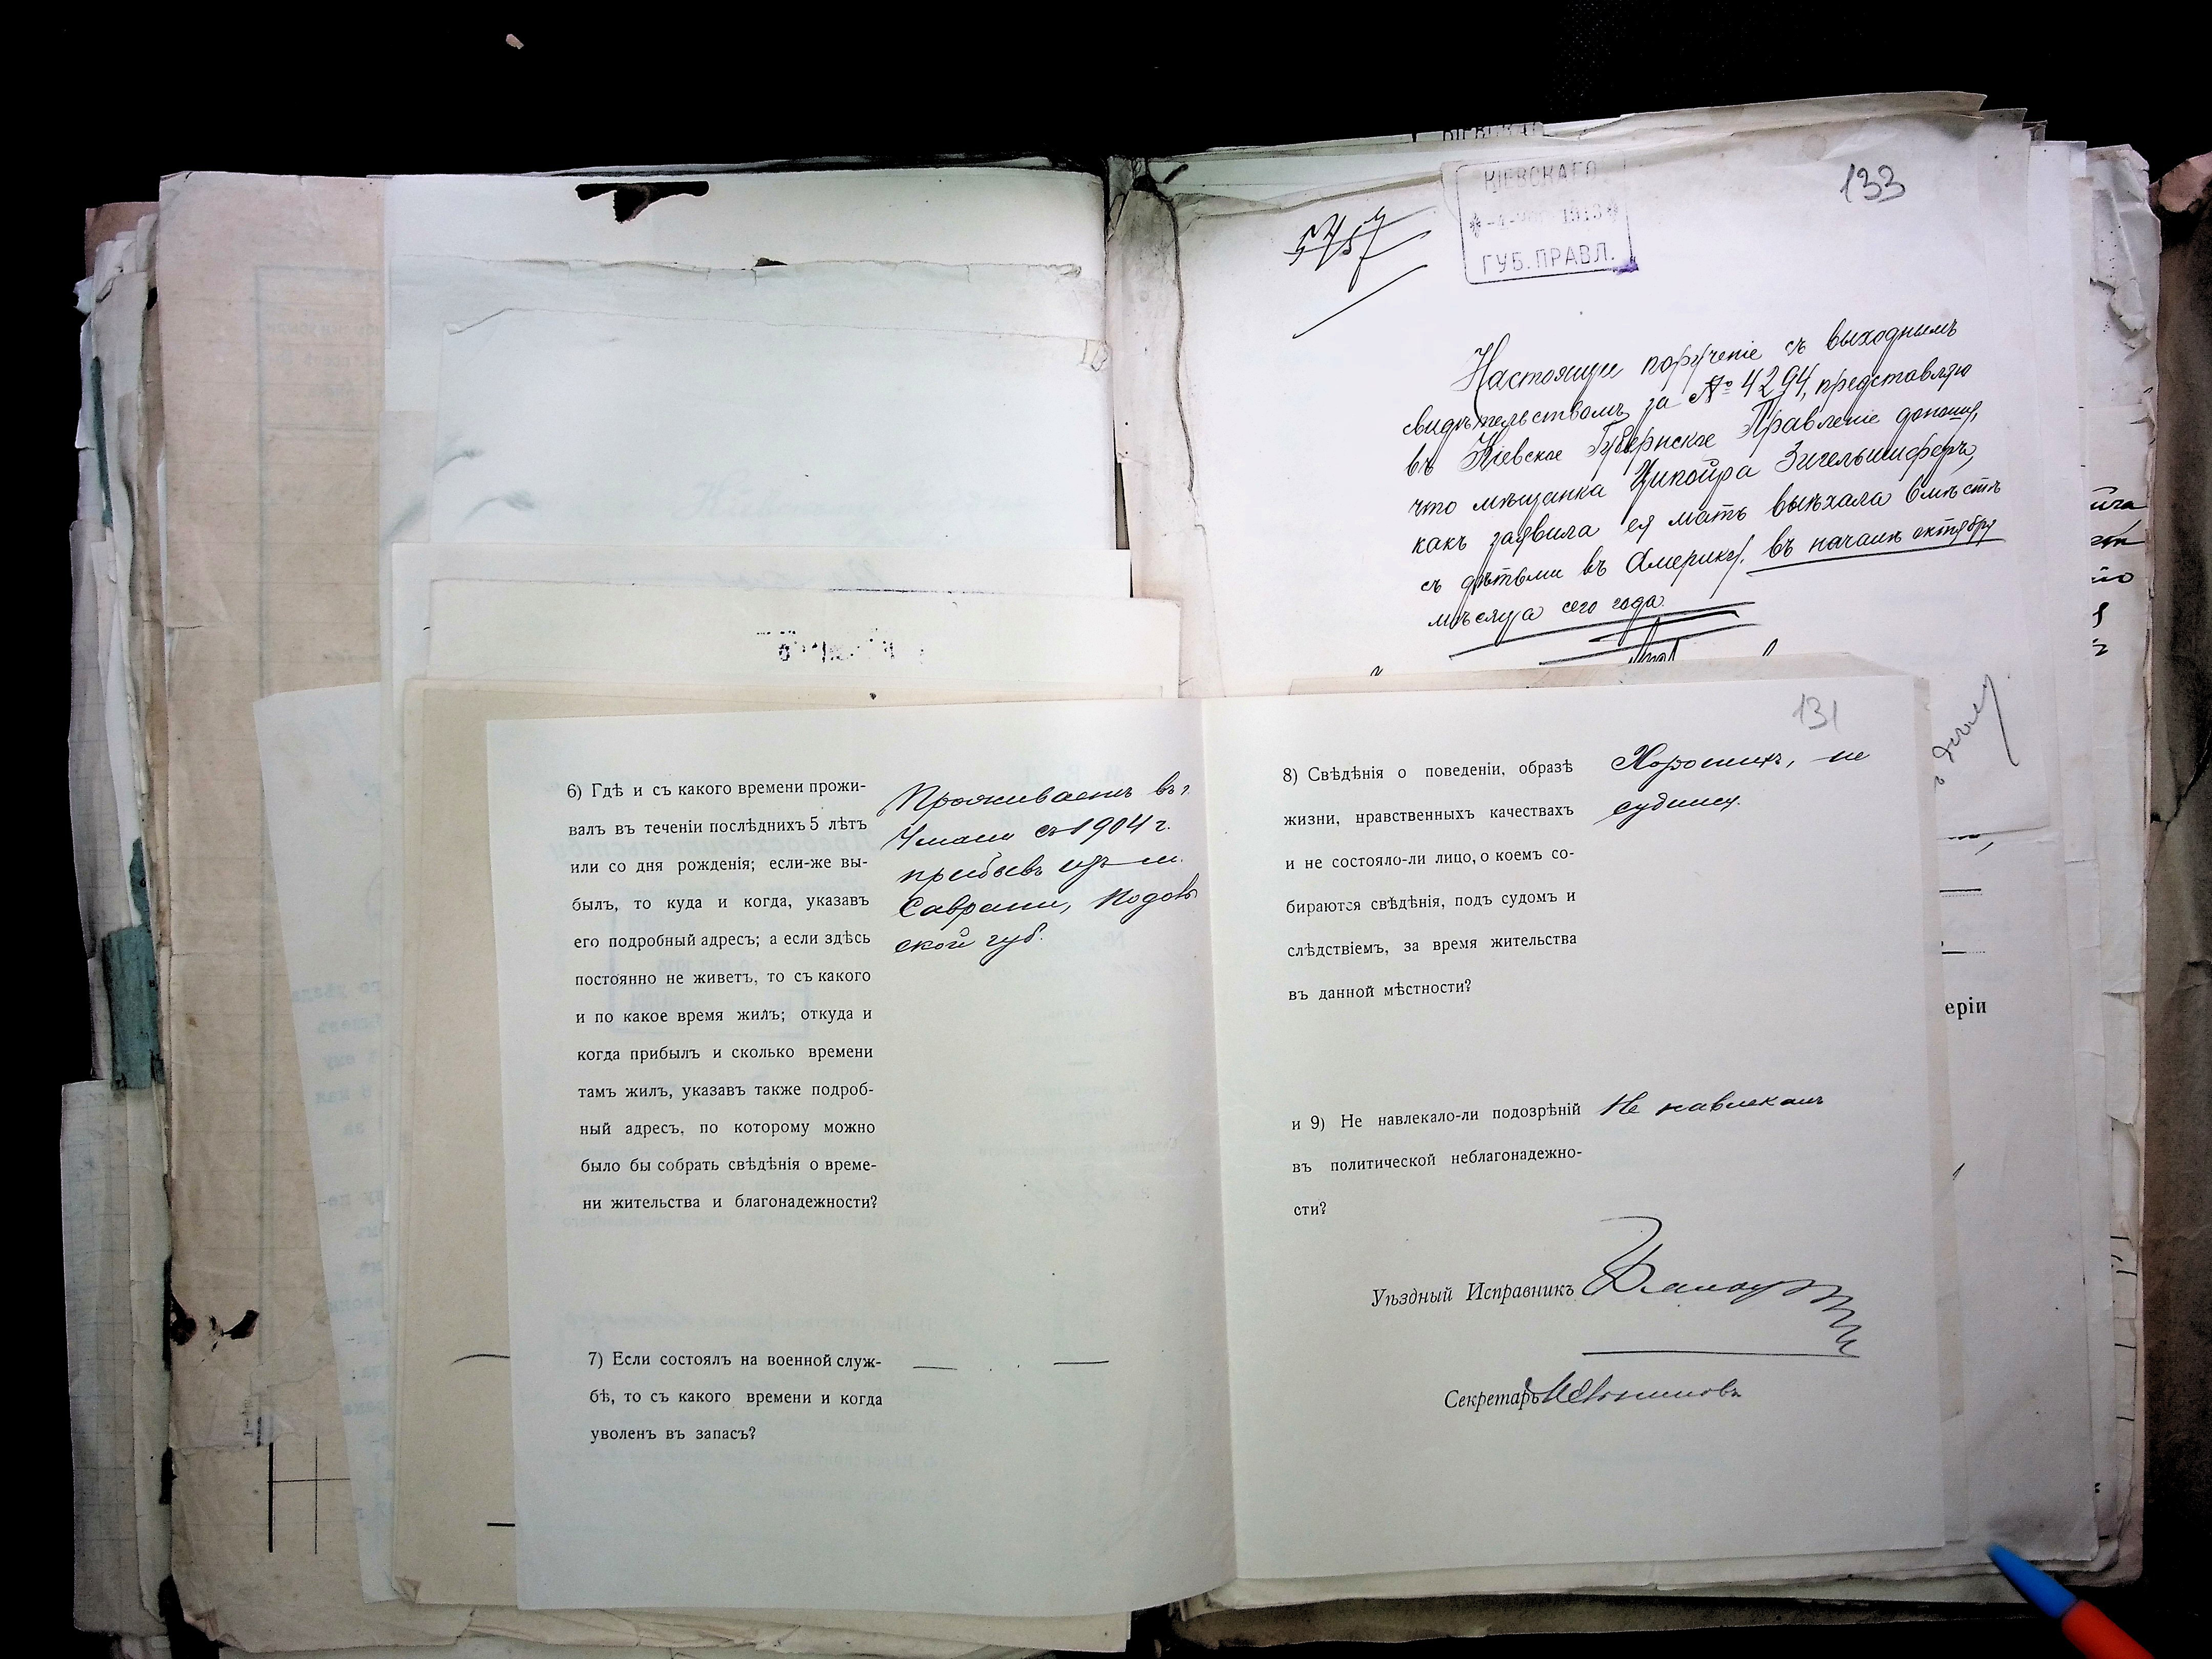 133
5757
КІЕВСКАГО
ГУБ. ПРАВЛ.
Настоящее порученіе съ выходнымъ
свидѣтельствомъ за № 4294, представляю
въ Кіевское Губернское Правленіе доношу,
что мѣщанка Ципойра Зигельшиферъ,
какъ заявила ея мать выѣхала вмѣстѣ
съ дѣтьми въ Америку, въ началѣ октября
мѣсяца сего года.
131
6) Гдѣ и съ какого времени прожи-
валъ въ теченіи послѣднихъ 5 лѣтъ
или со дня рожденія; если-же вы-
былъ, то куда и когда, указавъ
его подробный адресъ; а если здѣсь
постоянно не живетъ, то съ какого
и по какое время жилъ; откуда и
когда прибылъ и сколько времени
тамъ жилъ, указавъ также подроб-
ный адресъ, по которому можно
было бы собрать свѣдѣнія о време-
ни жительства и благонадежности?
Проживаетъ въ г.
Умани съ 1904 г.
прибывъ изъ м.
Саврани, Подоль
ской губ.
7) Если состоялъ на военной служ-
бѣ, то съ какого времени и когда
уволенъ въ запасъ?
8) Свѣдѣнія о поведеніи, образѣ
жизни, нравственныхъ качествахъ
и не состояло-ли лицо, о коемъ со-
бираются свѣдѣнія, подъ судомъ и
слѣдствіемъ, за время жительства
въ данной мѣстности?
Хорошихъ, не
судился.
и 9) Не навлекало-ли подозрѣній
въ политической неблагонадежно-
сти?
Не навлекалъ
Уѣздный Исправникъ
Секретарь
еріи